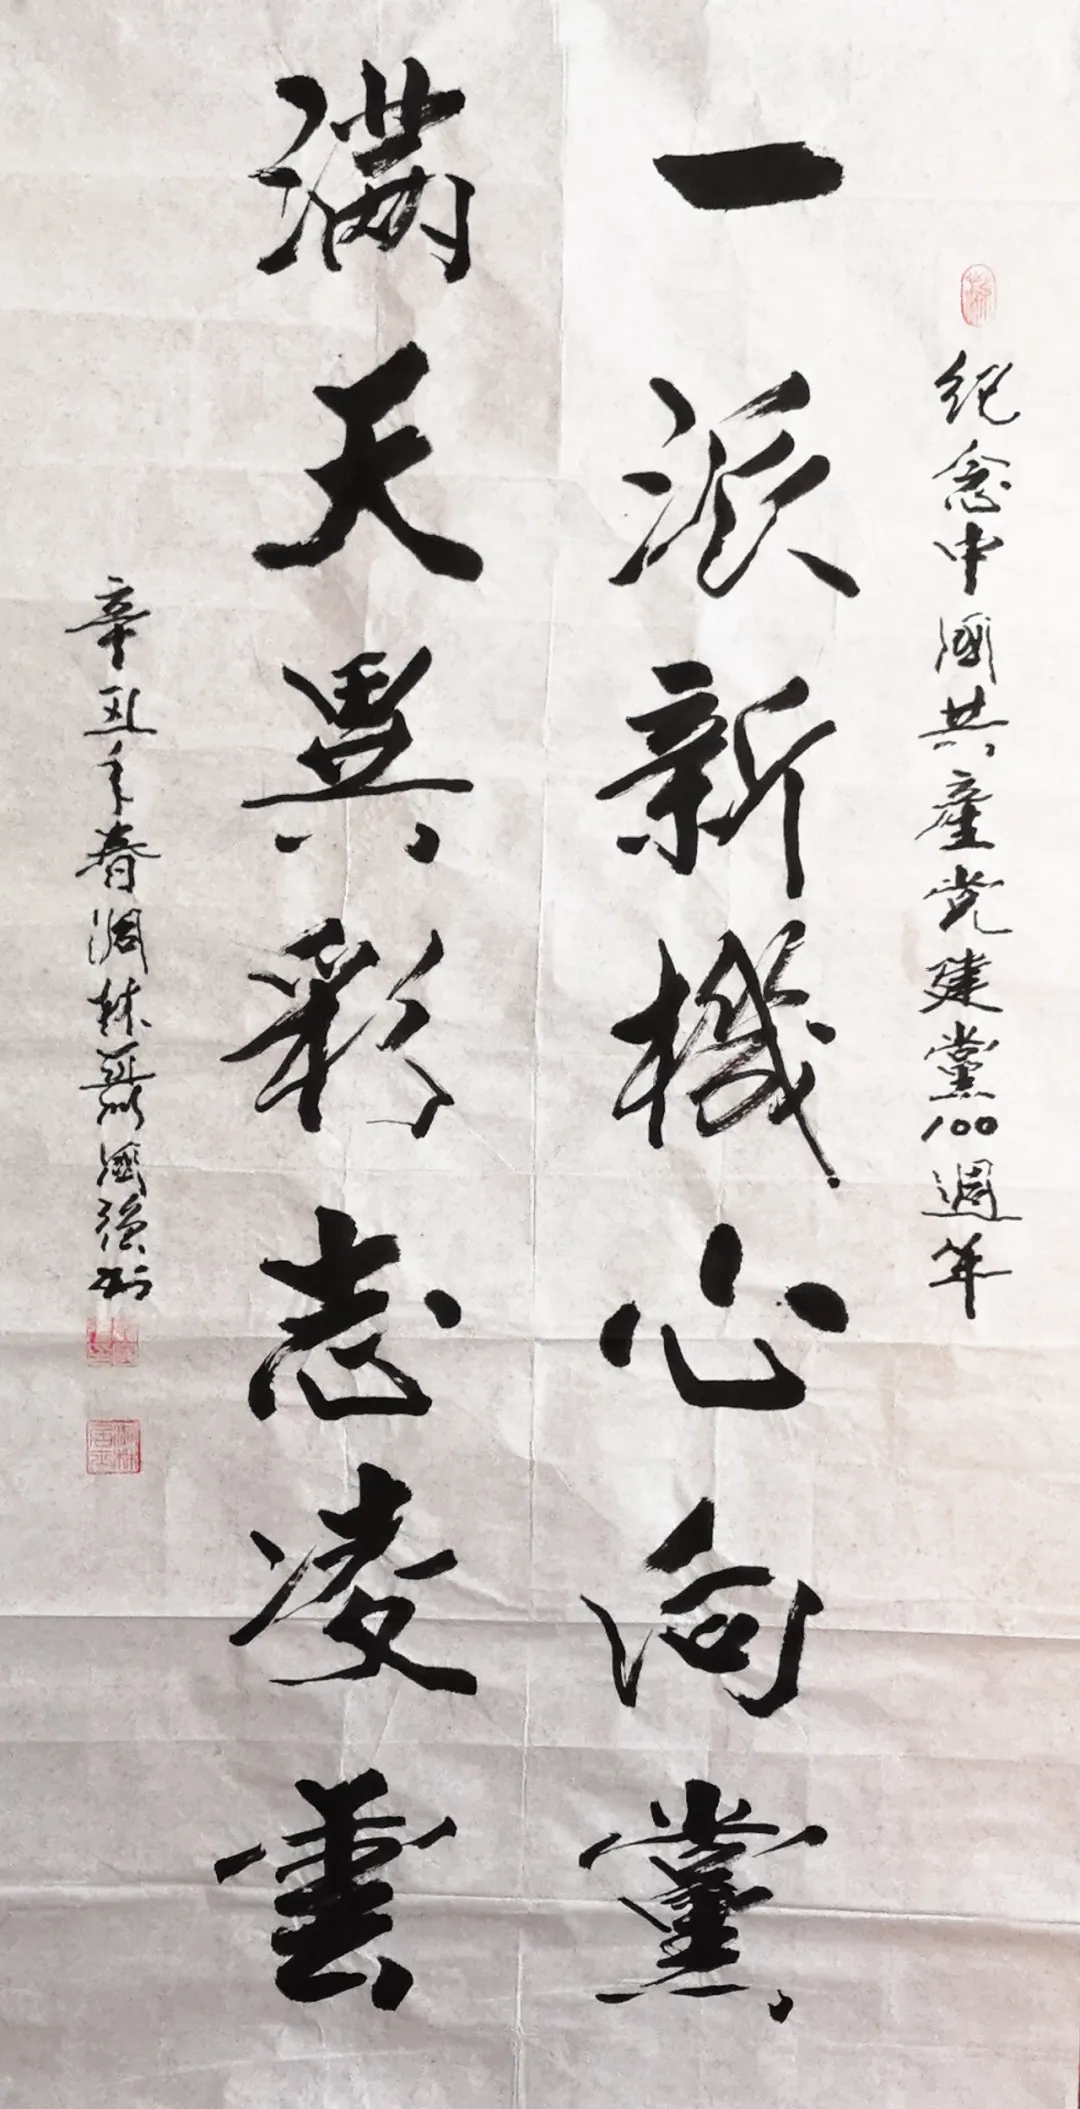 紀念中國共產党建黨100週年
一派新機心向黨
滿天異彩志凌雲
辛丑年春润林聂國強书